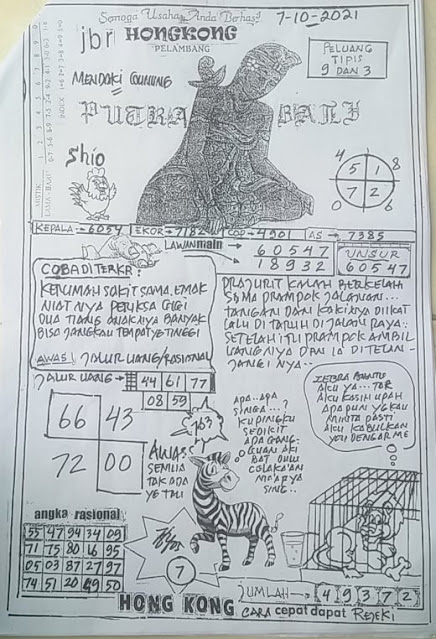 Semoga Usaha Anda Berhasil
7-10-2021
jbr HONGKONG
PELAMBANG
PELUANG
TIPIS
9 DAN 3
MENDAKI GUNUNG
PUTRA BALI
Shio
4 8
5 1
7 2
0 6
MISTIK
INDEX
KEPALA→6054 EKOR→7182 COP→4901 AS→7385
LAWAN main
60547
18932
UNSUR
60547
COBA DI TERKA:
KERUMAH SAKIT SAMA EMAK
NIATNYA PERIKSA GIGI
DUA TIANG ANAKNYA BANYAK
BISA JANGKAU TEMPAT YG TINGGI
AWAS! JALUR UANG/RASIONAL
PRAJURIT KALAH BERKELAHI
SAMA PRAMPOK JALANAN...
TANGAN DAN KAKINYA DIIKAT
LALU DI TARUH DI JALAN RAYA..
SETELAH ITU PRAMPOK AMBIL
UANGNYA DAN IA DI TELAN-
JANGI NYA..
JALUR UANG→ 44 61 77
08 59
763
66 43
72 00
AWAS
SEMUA
TAK ADA
YG TAU
APA.. APA
SINGA..?
KUPINGKU
SEDIKIT
BAT DULU
CELAKA'AN
SING..
ZEBRA BANTU
AKU YA... TAR
AKU KASIH UPAH
APAPUN YG KAU
MINTA PASTI
AKU KABULKAN
YOU DENGAR ME
angka rasional
55 47 94 34 09
71 75 80 16 95
05 03 87 27 97
74 51 20 49 50
7
JUMLAH→ 4 9 3 7 2
HONG KONG CARA cepat dapat REJEKI